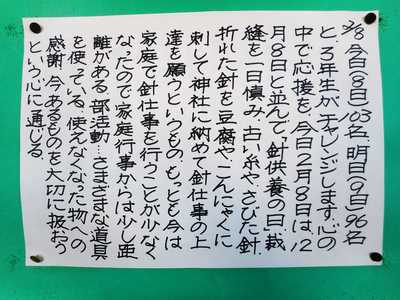 2/8 今日(8日)103名、明日(9日)96名
と、3年生がチャレンジします。心の
中で応援を、今日2月8日は、12
月8日と並んで「針供養の日」裁
縫を一日慎み、古い糸や、さびた針、
折れた針を豆腐やこんにゃくに
刺して神社に納めて針仕事の上
達を願うというもの。もっとも今は
家庭で針仕事を行うことが少なく
なったので家庭行事からは少し距
離がある。部活動…さまざまな道具
を使っている。使えなくなった物への
感謝、今あるものを大切に扱おう
という心に通じる。